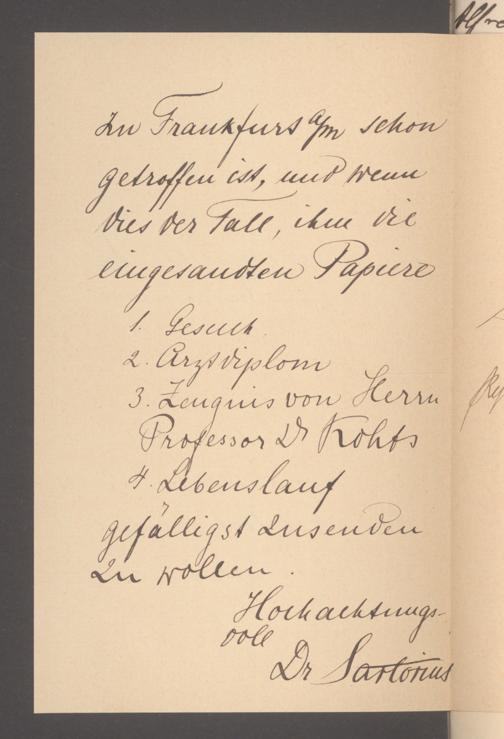 zu Frankfurt a/m schon
getroffen ist, und wenn
dies der Fall, ihm die
eingesandten Papiere
1. Gesuch.
2. Arztdiplom
3. Zeugnis von Herrn
Professor Dr Kohts
4. Lebenslauf
gefälligst zusenden
zu wollen.
Hochachtungs-
voll
Dr Sartorius